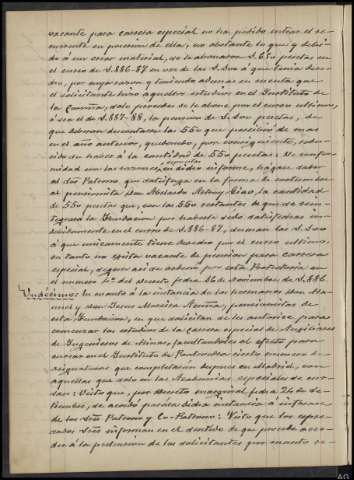 vacante para carrera especial no ha podido entrar el re-
currente en posesion de ella, no obstante lo que y debi-
do á un error material, se le abonaron 1.650 pesetas, en
el curso de 1886-87 en vez de las 1.100 á que tenia dere-
cho, por cuya razon y teniendo ademas en cuenta que
el solicitante hizo aquellos estudios en el Instituto de
la Coruña, solo procede se le abone, por el curso ultimo,
ó sea el de 1887-88, la pension de 1.100 pesetas, de
que deberan descontarse las 550 que percibió de mas
en el año anterior, quedando, por consiguiente, redu-
cido su haber á la cantidad de 550 pesetas: De confor-
midad con las razones emitidas informe, hagase saber
al dho Patrono que satisfaga en la forma de costumbre
al pensionista Don Abelardo la cantidad
de 550 pesetas que, con las 550 restantes de que se rein-
tegrará la fundacion por haberle sido satisfechas in-
debidamente en el curso de 1886-87, suman las 1.100
á que unicamente tiene derecho por el curso ultimo,
en tanto no exista vacante de pension para carrera
especial, segun asi se declaró por este Protectorado en
el numero 1º del decreto fecha 26 de Noviembre de 1886.
Undecimo: En cuanto á la instancia de los hermanos Don Ma-
nuel y Don Jesus Moreira, pensionistas de
esta fundacion, en que solicitan se les autorice para
comenzar los estudios de la carrera especial de Auxiliares
de Ingenieros de Minas, facultandoles al efecto para
cursar en el Instituto de Pontevedra cierto numero de
asignaturas que completarán despues en Madrid, con
aquellas que solo en las Academias especiales de cur-
san: Visto que, por decreto marginal, fecha 24 de Se-
tiembre, se acordó pasára dicha instancia á informe
de los Sres Patrono y Co-Patrono: Visto que los expre-
sados Sres informan en el sentido de que procede acce-
der á la pretension de los solicitantes por cuanto es-